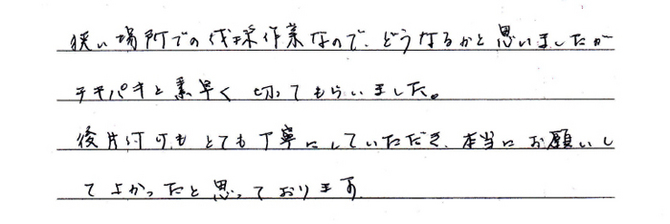 狭い場所での伐採作業なので、どうなるかと思いましたが
テキパキと素早く切ってもらいました。
後片付けもとても丁寧にしていただき、本当にお願いし
てよかったと思っております。